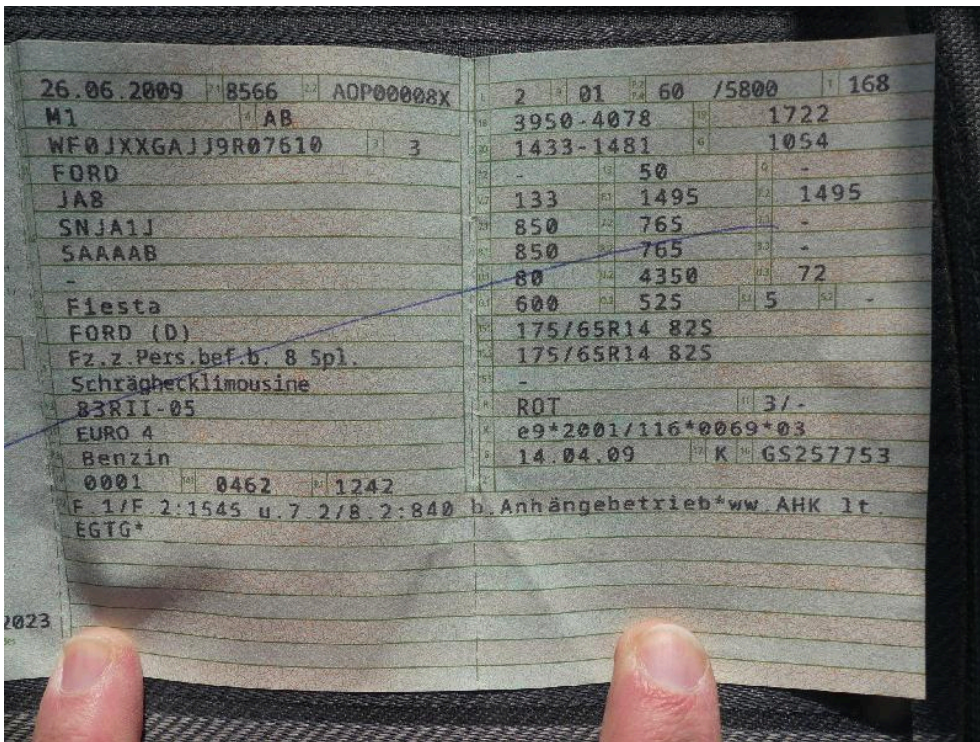 26.06.2009 8566 AOP00008X
M1 AB
WF0JXXGAJJ9R07610 3
FORD
JA8
SNJA1J
SAAAAB
-
Fiesta
FORD (D)
Fz.z.Pers.bef.b. 8 Spl.
Schräghecklimousine
83RII-05
EURO 4
Benzin
0001 0462 1242
2 01 60 /5800 168
3950-4078 1722
1433-1481 1054
- 50 -
133 1495 1495
850 765 -
850 765 -
80 4350 72
600 525 5 -
175/65R14 82S
175/65R14 82S
-
ROT 3/-
e9*2001/116*0069*03
14.04.09 K GS257753
F.1/F.2:1545 u.7.2/8.2:840 b.Anhängebetrieb*ww.AHK lt.
EGTG*
2023